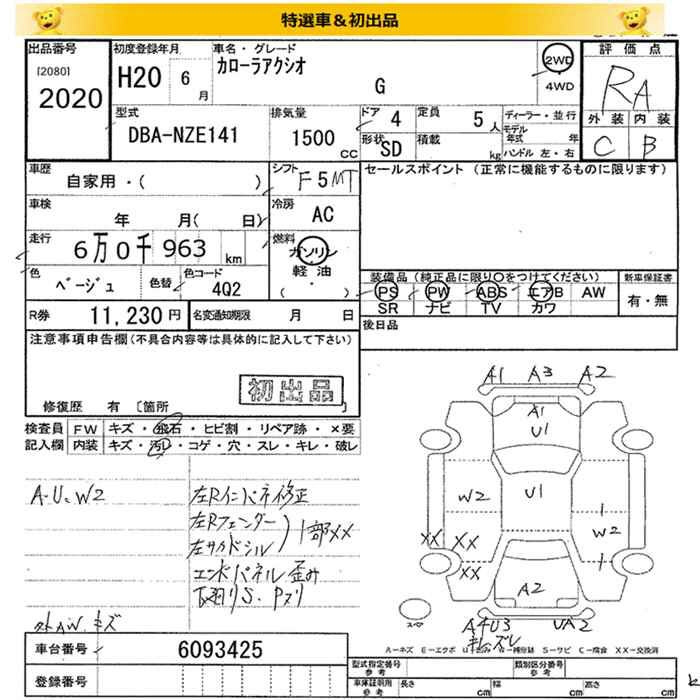 特選車＆初出品
出品番号
[2080]
2020
初度登録年月
H20 6月
車名・グレード
カローラアクシオ
G
2WD
4WD
評価点
RA
外装 内装
C B
型式
DBA-NZE141
排気量
1500 cc
ドア 4
定員 5人
形状 SD
積載 kg
ディーラー・並行
モデル年式 年
ハンドル 左・右
車歴
自家用・( )
シフト
F5MT
セールスポイント (正常に機能するものに限ります)
車検
年 月( 日)
冷房
AC
走行
6万0千963 km
燃料
ガソリン
軽油
( ・ )
色
ベージュ
色替
色コード
4Q2
装備品 (純正品に限り○をつけてください)
PS PW ABS エアB AW
SR ナビ TV カワ
新車保証書
有・無
R券 11,230円
名変通知期限 月 日
後日品
注意事項申告欄 (不具合内容等は具体的に記入して下さい)
初出品
修復歴 有 [箇所 ]
検査員記入欄
FW キズ・飛石・ヒビ割・リペア跡・×要
内装 キズ・汚レ・コゲ・穴・スレ・キレ・破レ
A・U・W2
左Rインパネ修正
左Rフェンダー
左サイドシル
1部××
エンドパネル歪み
下廻りS・Pヌリ
外AW キズ
A1 A3 A2
A1
U1
W2
U1
W2
XX XX
XX
A2
A4U3
キレズレ
UA2
A=キズ E=エクボ U=凹み W=補修跡 S=サビ C=腐食 XX=交換済
車台番号 6093425
登録番号
型式指定番号 参考
類別区分番号 参考
車庫証明用 参考
長さ cm 幅 cm 高さ cm
と